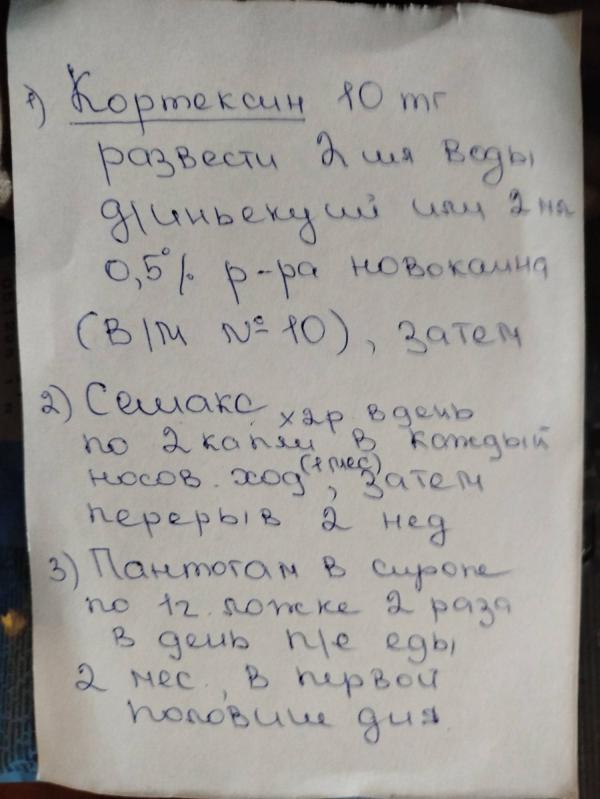 1) Кортексин 10 мг
развести 2 мл воды
д/иньекций или 2 мл
0,5% р-ра новокаина
(в/м №10), затем
2) Семакс х 2р. в день
по 2 капли в каждый
носов. ход (1 мес), затем
перерыв 2 нед
3) Пантогам в сиропе
по 1 ч. ложке 2 раза
в день п/е еды
2 мес., в первой
половине дня.